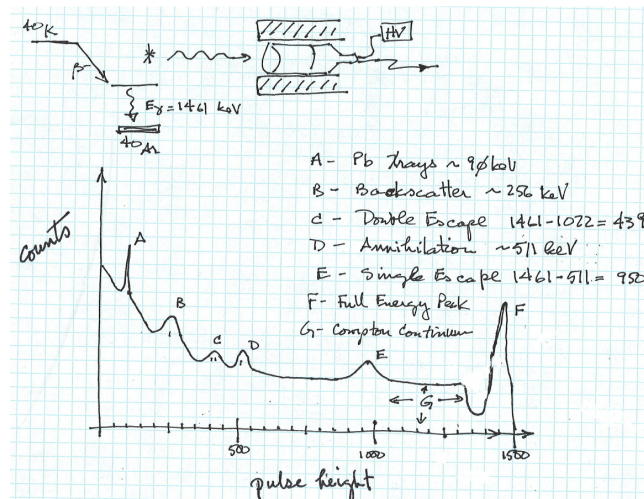 40K
HV
β-
*
Eγ = 1461 keV
40Ar
A - Pb Xrays ~ 90 keV
B - Backscatter ~ 256 keV
C - Double Escape 1461-1022 = 439
D - Annihilation ~ 511 keV
E - Single Escape 1461-511 = 950
F - Full Energy Peak
G - Compton Continuum
counts
A
B
C
D
E
F
G
500
1000
1500
pulse height